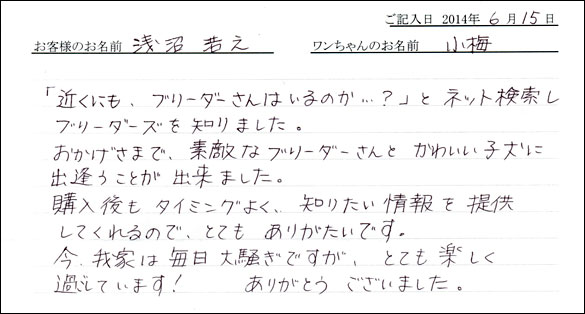 ご記入日 2014年 6月 15日
お客様のお名前 浅沼 若え ワンちゃんのお名前 小梅
「近くにも、ブリーダーさんはいるのか…?」と ネット検索し
ブリーダーズを知りました。
おかげさまで、素敵なブリーダーさんと かわいい子犬に
出逢うことが 出来ました。
購入後も タイミングよく、知りたい情報を 提供
してくれるので、とても ありがたいです。
今、我家は毎日 大騒ぎですが、とても 楽しく
過しています! ありがとう ございました。